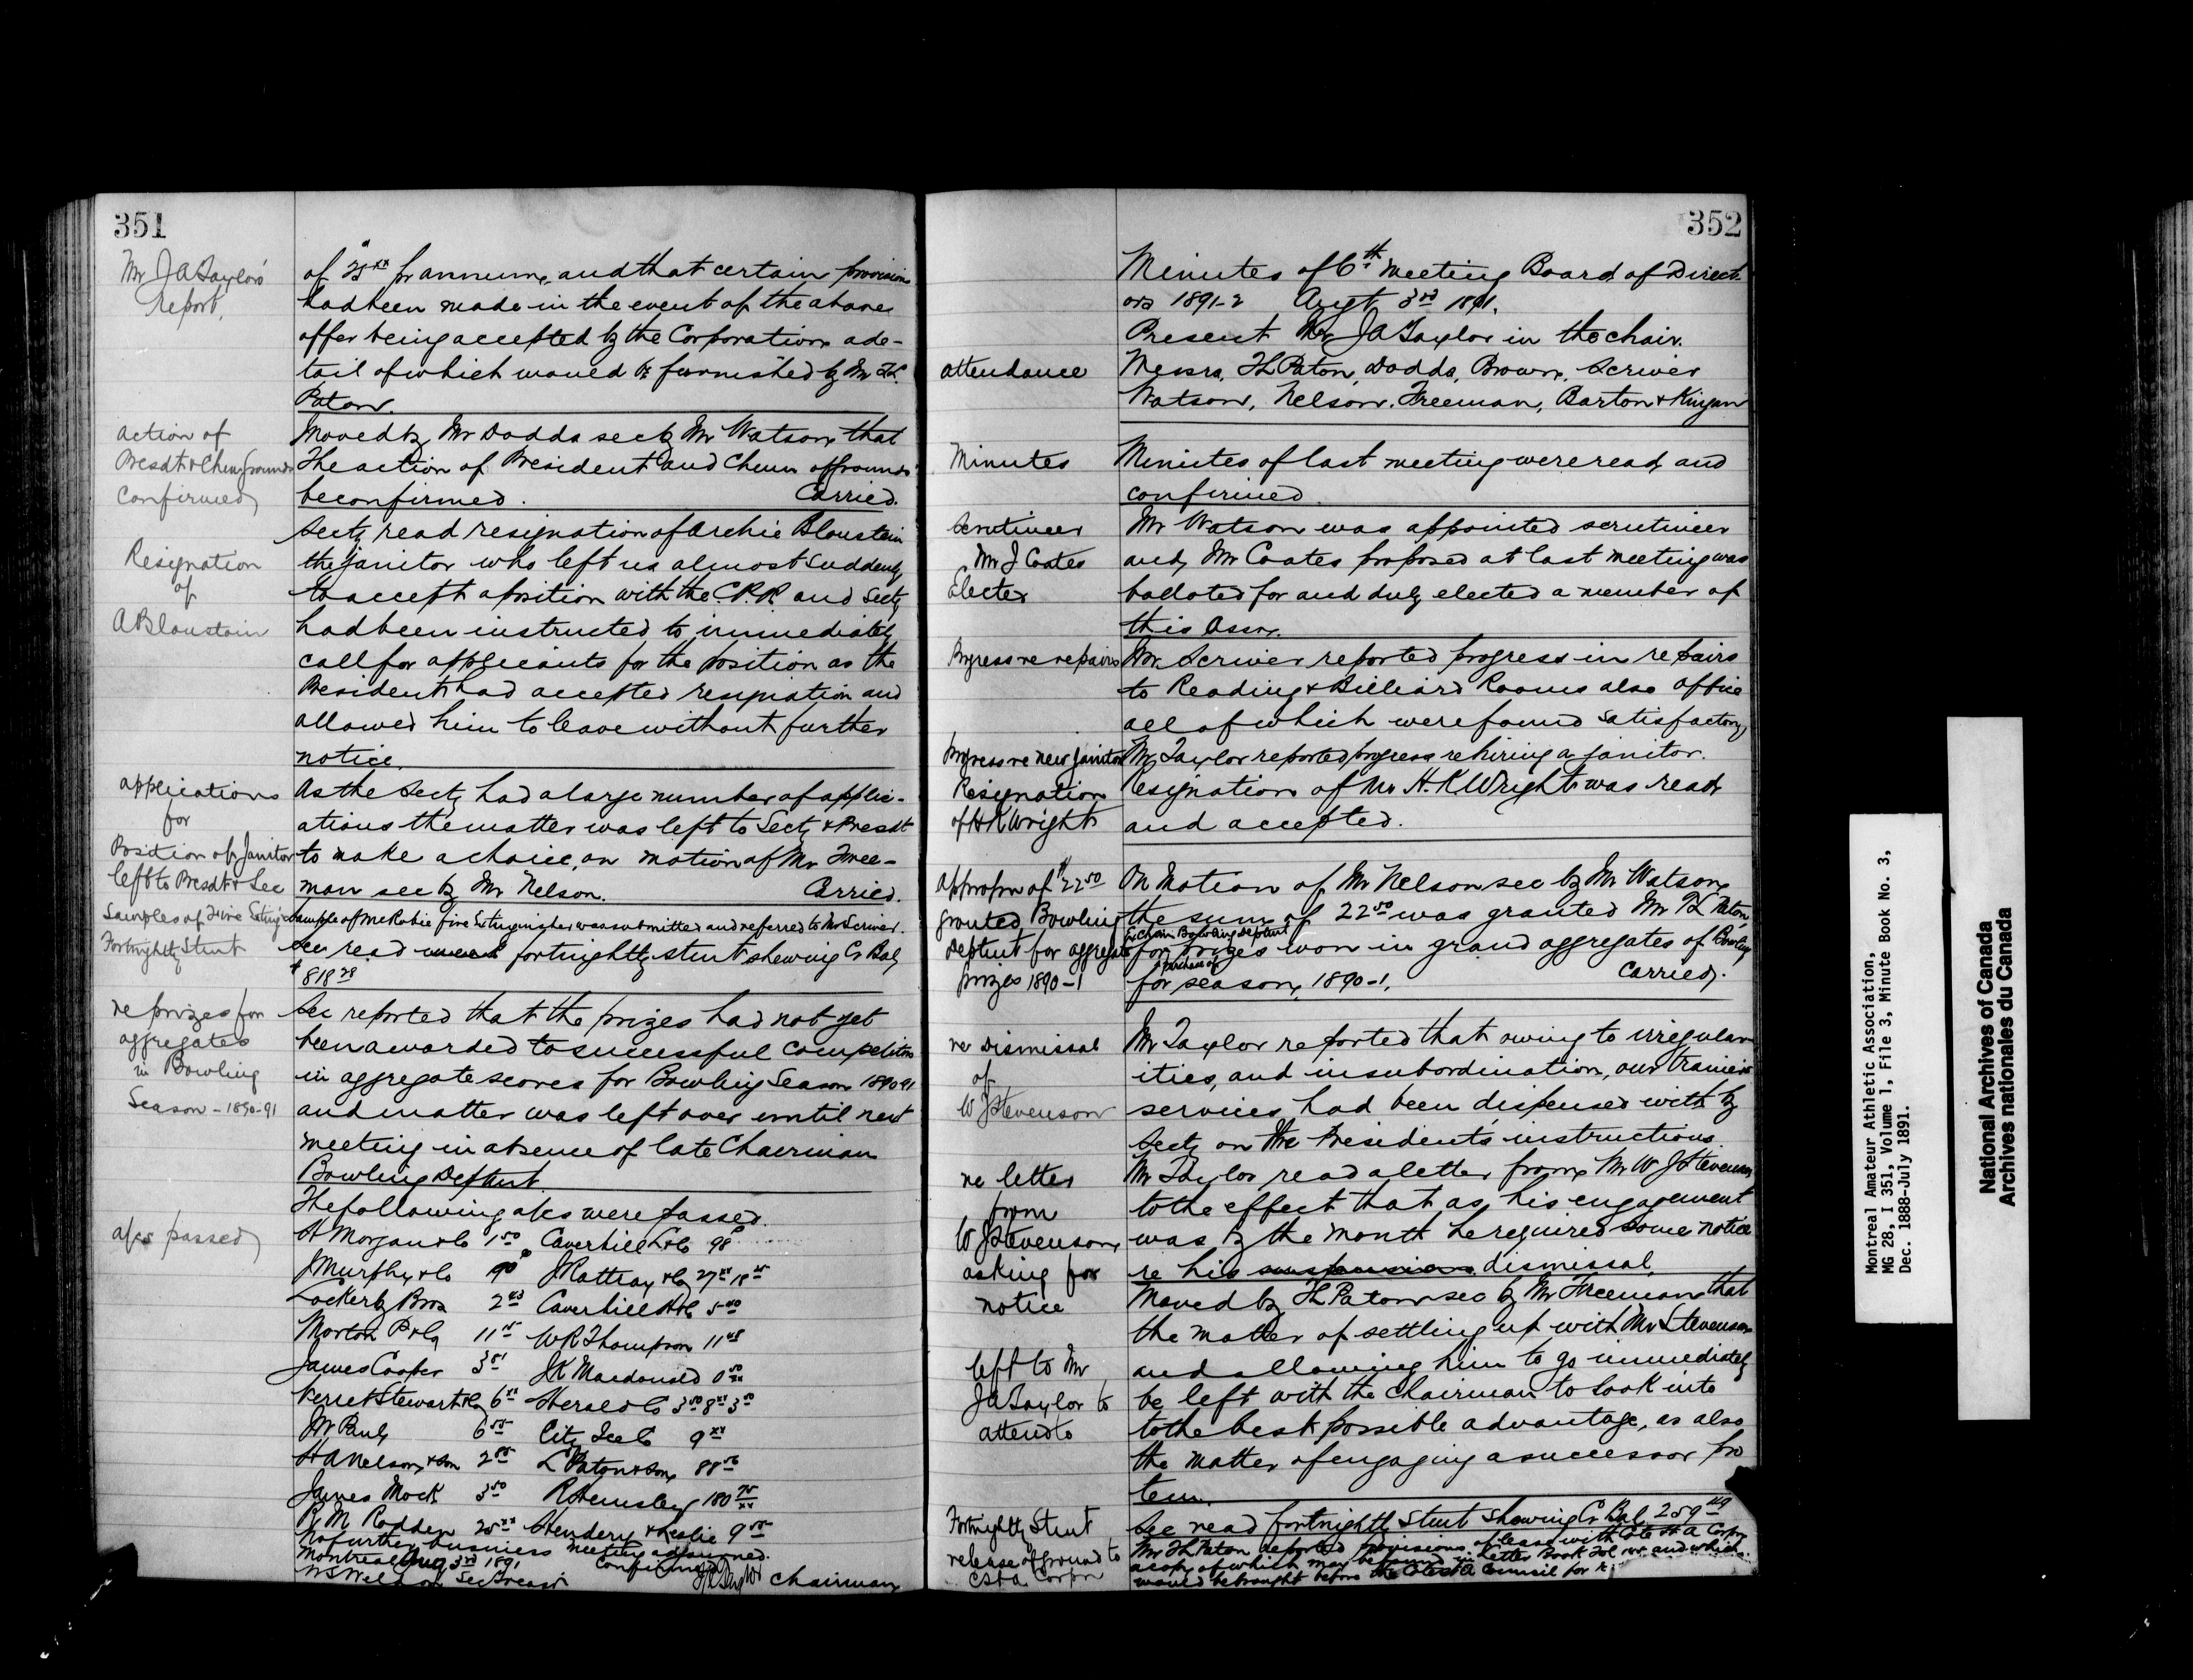 351
Mr JA Taylors'
report,
of $25xx pr annum, and that certain provisions
had been made in the event of the above
offer being accepted by the Corporation, a de-
tail of which would be furnished by Mr TL
Paton.
action of
Presdt & Chmn Grounds
confirmed
Moved by Mr Dodds sec by Mr Watson that
The action of President and Chmn of Grounds
be confirmed. Carried.
Resignation
of
A Bloustein
Secty read resignation of Archie Bloustein
the janitor who left us almost suddenly
to accept a position with the C.P.R. and Secty
had been instructed to immediately
call for applicants for the position as the
President had accepted resignation and
allowed him to leave without further
notice.
applications
for
Position of Janitor
left to Presdt & Sec
As the Secty had a large number of applic-
ations the matter was left to Secty & Presdt
to make a choice, on motion of Mr Free-
man sec by Mr Nelson. Carried.
Samples of Fire Exting
Sample of McRobie fire Extinguisher was submitted and referred to Mr Scriver.
Fortnightly Stmt
Sec read fortnightly stmt shewing Cr Bal,
$818 28
re prizes for
aggregates
in Bowling
Season - 1890-91
Sec reported that the prizes had not yet
been awarded to successful competitors
in aggregate scores for Bowling Season 1890 91
and matter was left over until next
meeting in absence of late Chairman
Bowling Deptmt.
a/cs passed
The following a/cs were passed.
H Morgan & Co 1 50 Caverhill L & Co 98
J Murphy & Co 90 J Rattray & Co 27 xx 18
Lockerby Bros 2 Caverhill H & Co 5
Morton P & Co 11 WR Thompson 11
James Cooper 3 JK Macdonald 0 50
Verret Stewart & Co 6 xx Herald Co 3 50 8 xx 3 50
JW Pauly 6 City Ice Co 9 xx
HA Nelson & Son 2 L Paton & Son 88
James Mock 3 50 R Hemsley 180
R & M Rodden 25 xx Hendery & Leslie 9
No further business meeting adjourned.
Montreal Aug 3rd 1891 Confirmed
WS Weldon Sec Treasr JA Taylor Chairman
352
Minutes of 6th meeting Board of Direct-
ors 1891-2 Augt 3rd 1891.
Present Mr JA Taylor in the chair.
attendance
Messrs, TL Paton, Dodds, Brown, Scriver
Watson, Nelson, Freeman, Barton & Kingan
Minutes
Minutes of last meeting were read and
confirmed.
Scrutineer
Mr J Coates
Elected
Mr Watson was appointed scrutineer
and Mr Coates proposed at last meeting was
balloted for and duly elected a member of
this Assn.
Progress re repairs
Mr Scriver reported progress in repairs
to Reading & Billiard Rooms also office
all of which were found satisfactory
Progress re new janitor
Mr Taylor reported progress re hiring a janitor.
Resignation
of HK Wright
Resignation of Mr H.K Wright was read
and accepted.
appropn of $22 50
granted Bowling
Deptmt for aggregate
prizes 1890-1
On Motion of Mr Nelson sec by Mr Watson
the sum of 22 50 was granted Mr TL Paton
Ex Chairn Bowling Deptmt
for prizes won in grand aggregates of Bowling
purchase of
for season, 1890-1. Carried.
re Dismissal
of
WJ Stevenson
Mr Taylor reported that owing to irregular-
ities, and insubordination, our trainer's
services had been dispensed with by
Secty on the President's instructions.
re letter
from
WJ Stevenson
asking for
notice
Mr Taylor read a letter from Mr WJ Stevenson
to the effect that as his engagement
was by the month he required some notice
re his suspension dismissal.
left to Mr
JA Taylor to
attend to
Moved by TL Paton sec by Mr Freeman that
the matter of settling up with Mr Stevenson
and allowing him to go immediately
be left with the chairman to look into
to the best possible advantage, as also
the matter of engaging a successor pro
tem.
Fortnightly Stmt
Sec read fortnightly Stmt Showing Cr Bal 259 49
re lease of ground to
CStA Corpn
Mr TL Paton reported provisions of lease with Cote St A Corpn
a copy of which may be found in Letter Book Fol xx and which
would be brought before the Cote St A Council for
Montreal Amateur Athletic Association,
MG 28, I 351, Volume 1, File 3, Minute Book No. 3,
Dec. 1888-July 1891.
National Archives of Canada
Archives nationales du Canada